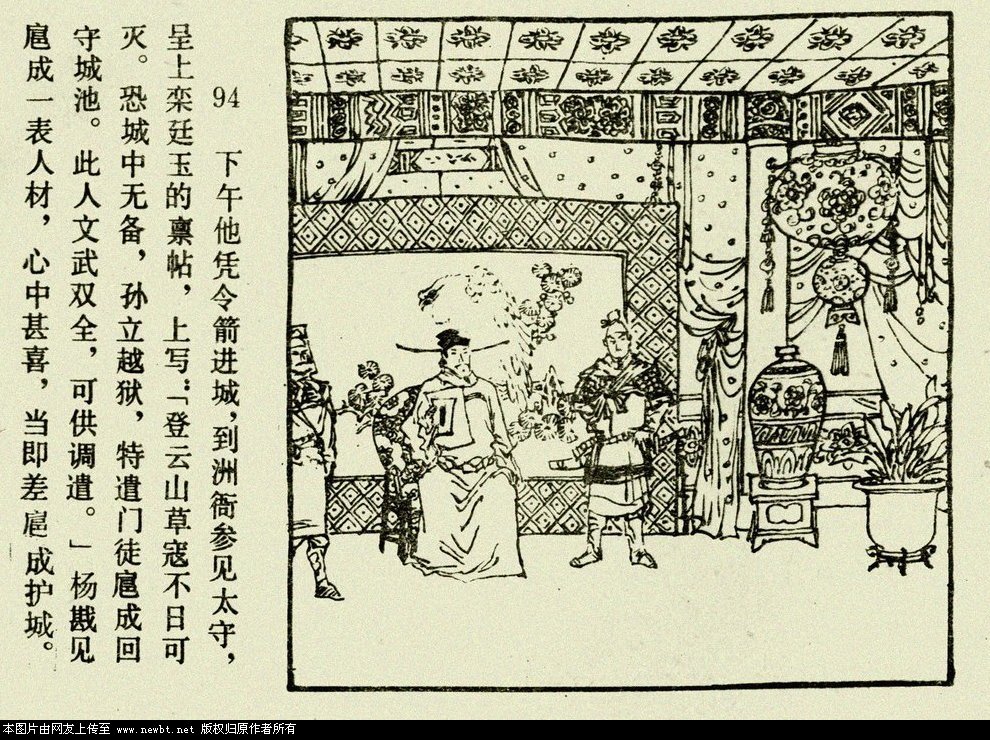 94 下午他凭令箭进城，到洲衙参见太守，
呈上栾廷玉的禀帖，上写：“登云山草寇不日可
灭。恐城中无备，孙立越狱，特遣门徒扈成回
守城池。此人文武双全，可供调遣。”杨戡见
扈成一表人材，心中甚喜，当即差扈成护城。
本图片由网友上传至 www.newbt.net 版权归原作者所有